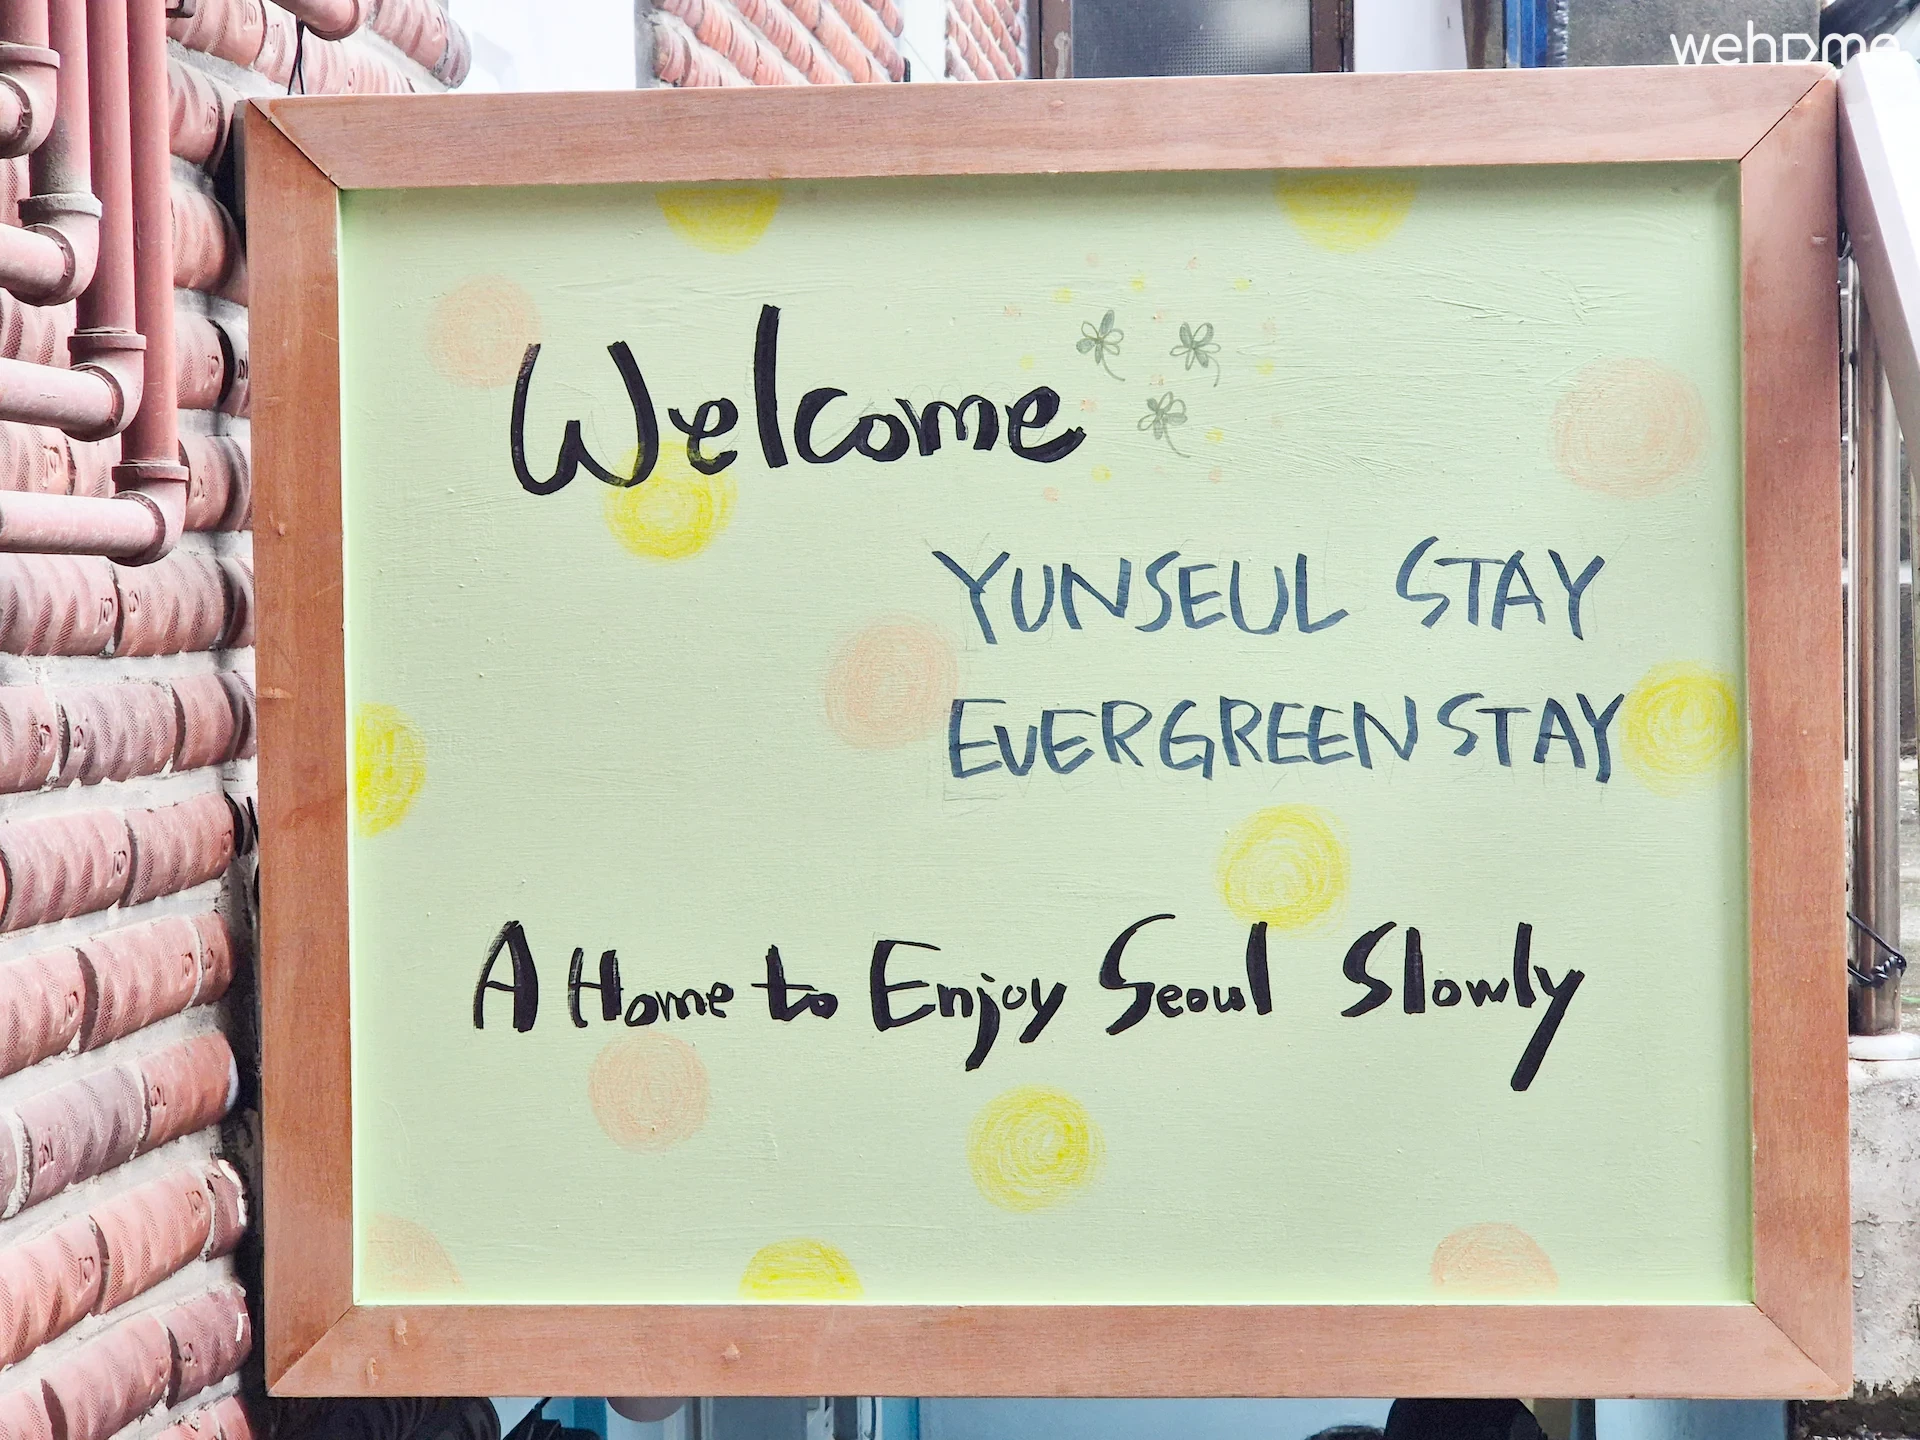 wehome
Welcome
YUNSEUL STAY
EVERGREEN STAY
A Home to Enjoy Seoul Slowly